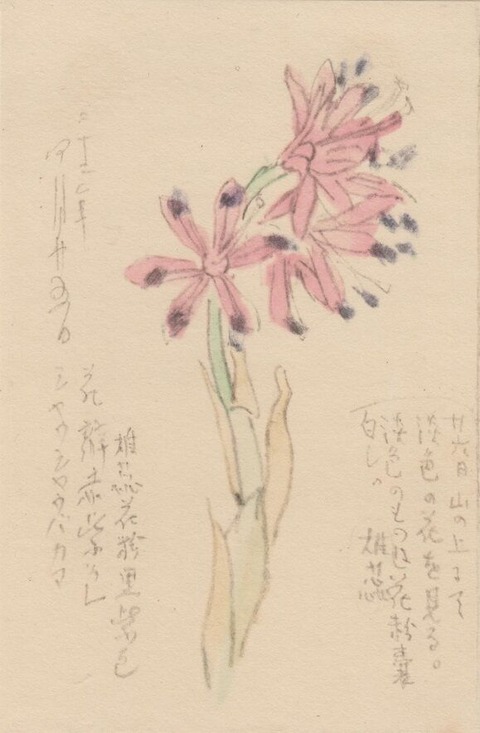 廿六日 山の上にて
淡色の花を見る。
淡色のものは花粉嚢
白し。 雄蕊
二十二年
四月廿五日
雄蕊花粉黒紫色
花瓣赤紫
シヤウジヤウバカマ